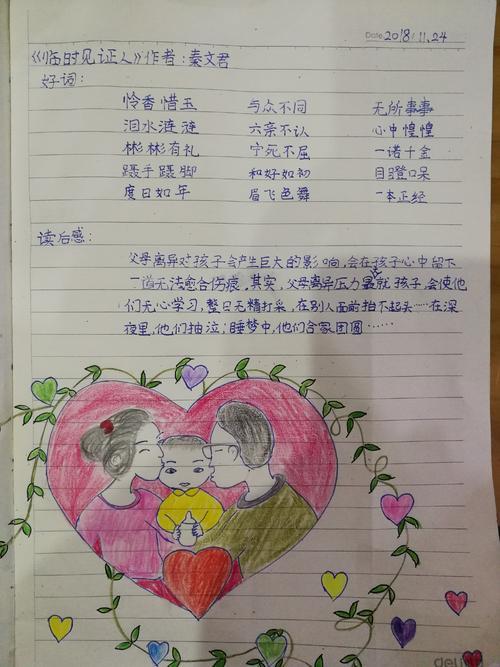 Date 2018.11.24
《临时见证人》作者:秦文君
好词:
怜香惜玉 与众不同 无所事事
泪水涟涟 六亲不认 心中惶惶
彬彬有礼 宁死不屈 一诺千金
蹑手蹑脚 和好如初 目瞪口呆
度日如年 眉飞色舞 一本正经
读后感:
父母离异对孩子会产生巨大的影响,会在孩子心中留下
一道无法愈合伤痕,其实,父母离异压力最就孩子,会使他
们无心学习,整日无精打采,在别人面前抬不起头……在深
夜里,他们抽泣;睡梦中,他们合家团圆……
deli